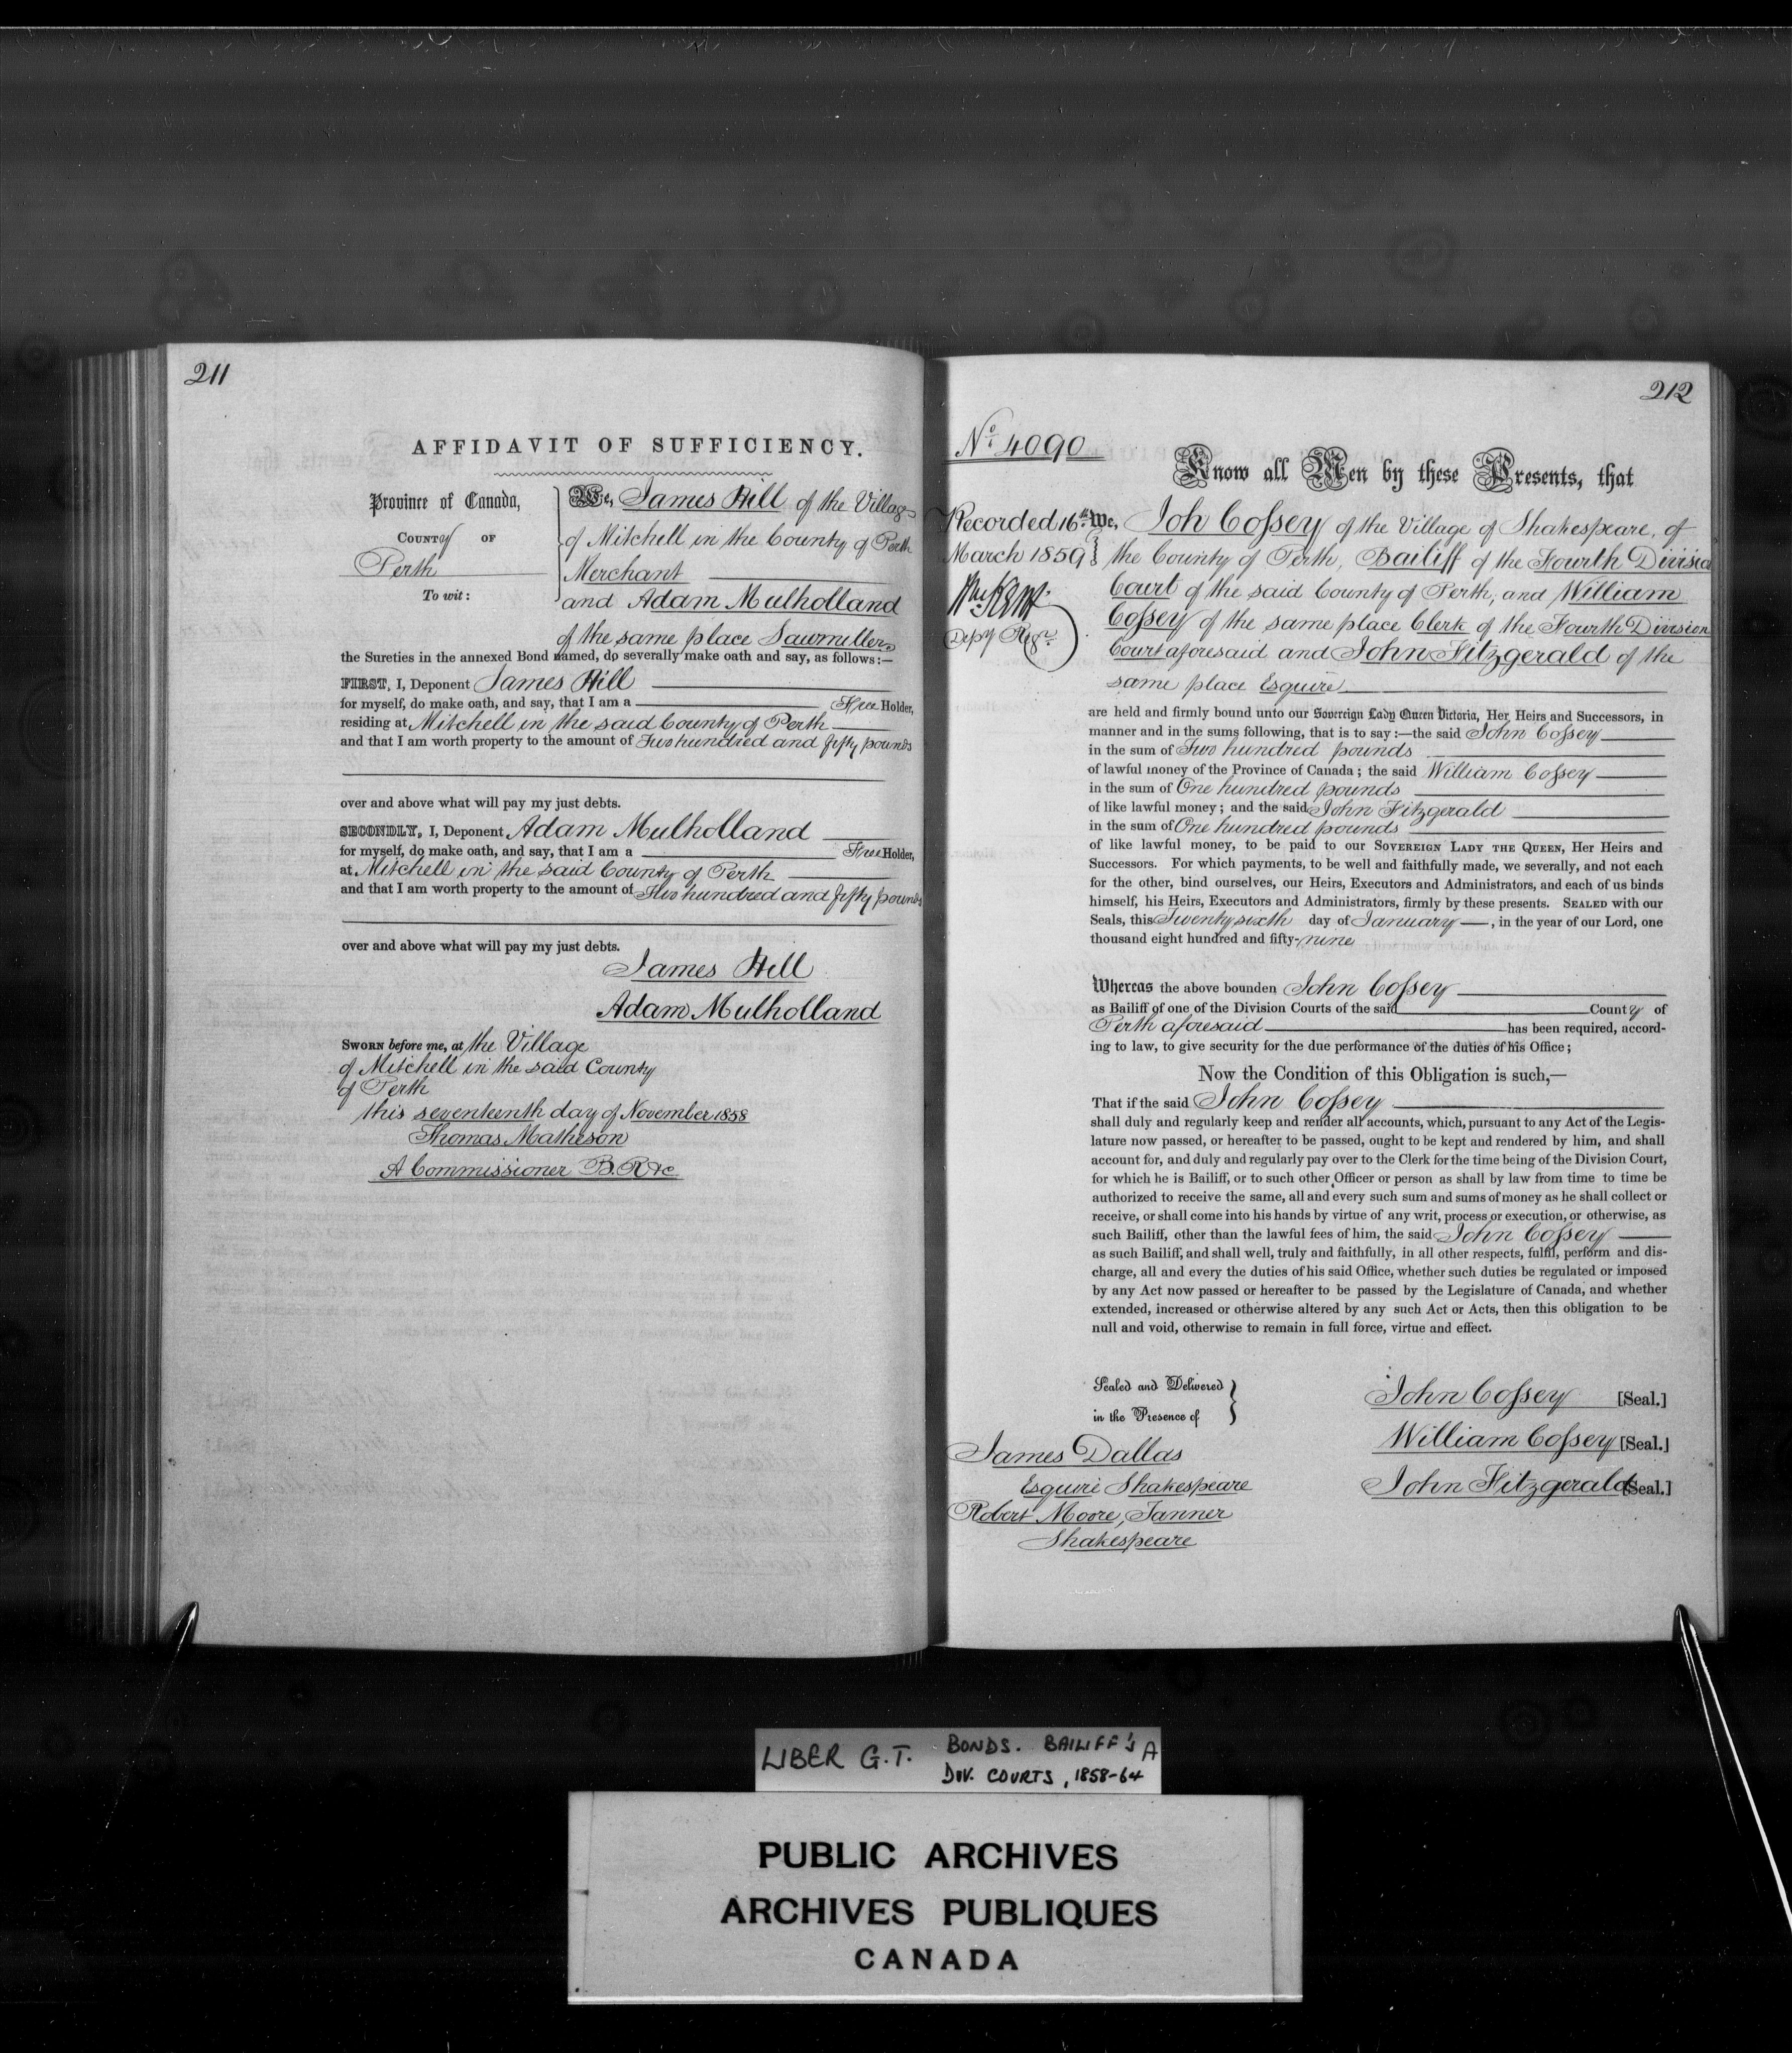 211
AFFIDAVIT OF SUFFICIENCY.
Province of Canada,
County OF
Perth
To wit:
We, James Hill of the Village
of Mitchell in the County of Perth
Merchant
and Adam Mulholland
of the same place Sawmiller
the Sureties in the annexed Bond named, do severally make oath and say, as follows:—
FIRST, I, Deponent James Hill
for myself, do make oath, and say, that I am a Free Holder,
residing at Mitchell in the said County of Perth
and that I am worth property to the amount of Two hundred and fifty pounds
over and above what will pay my just debts.
SECONDLY, I, Deponent Adam Mulholland
for myself, do make oath, and say, that I am a Free Holder,
at Mitchell in the said County of Perth
and that I am worth property to the amount of Two hundred and fifty pounds
over and above what will pay my just debts.
James Hill
Adam Mulholland
SWORN before me, at the Village
of Mitchell in the said County
of Perth
this seventeenth day of November 1858
Thomas Matheson
A Commissioner B.R &c
212
No. 4090
Recorded 16th
March 1859
Depy Regr.
Know all Men by these Presents, that
We, Joh Cossey of the Village of Shakespeare, of
the County of Perth, Bailiff of the Fourth Division
Court of the said County of Perth, and William
Cossey of the same place Clerk of the Fourth Division
Court aforesaid and John Fitzgerald of the
same place Esquire
are held and firmly bound unto our Sovereign Lady Queen Victoria, Her Heirs and Successors, in
manner and in the sums following, that is to say:—the said John Cossey
in the sum of Two hundred pounds
of lawful money of the Province of Canada; the said William Cossey
in the sum of One hundred pounds
of like lawful money; and the said John Fitzgerald
in the sum of One hundred pounds
of like lawful money, to be paid to our SOVEREIGN LADY THE QUEEN, Her Heirs and
Successors. For which payments, to be well and faithfully made, we severally, and not each
for the other, bind ourselves, our Heirs, Executors and Administrators, and each of us binds
himself, his Heirs, Executors and Administrators, firmly by these presents. SEALED with our
Seals, this Twenty sixth day of January —, in the year of our Lord, one
thousand eight hundred and fifty-nine
Whereas the above bounden John Cossey
as Bailiff of one of the Division Courts of the said County of
Perth aforesaid has been required, accord-
ing to law, to give security for the due performance of the duties of his Office;
Now the Condition of this Obligation is such,—
That if the said John Cossey
shall duly and regularly keep and render all accounts, which, pursuant to any Act of the Legis-
lature now passed, or hereafter to be passed, ought to be kept and rendered by him, and shall
account for, and duly and regularly pay over to the Clerk for the time being of the Division Court,
for which he is Bailiff, or to such other Officer or person as shall by law from time to time be
authorized to receive the same, all and every such sum and sums of money as he shall collect or
receive, or shall come into his hands by virtue of any writ, process or execution, or otherwise, as
such Bailiff, other than the lawful fees of him, the said John Cossey
as such Bailiff, and shall well, truly and faithfully, in all other respects, fulfil, perform and dis-
charge, all and every the duties of his said Office, whether such duties be regulated or imposed
by any Act now passed or hereafter to be passed by the Legislature of Canada, and whether
extended, increased or otherwise altered by any such Act or Acts, then this obligation to be
null and void, otherwise to remain in full force, virtue and effect.
Sealed and Delivered
in the Presence of
James Dallas
Esquire Shakespeare
Robert Moore, Tanner
Shakespeare
John Cossey [Seal.]
William Cossey [Seal.]
John Fitzgerald [Seal.]
LIBER G.T. BONDS. BAILIFF'S A
DIV. COURTS, 1858-64
PUBLIC ARCHIVES
ARCHIVES PUBLIQUES
CANADA